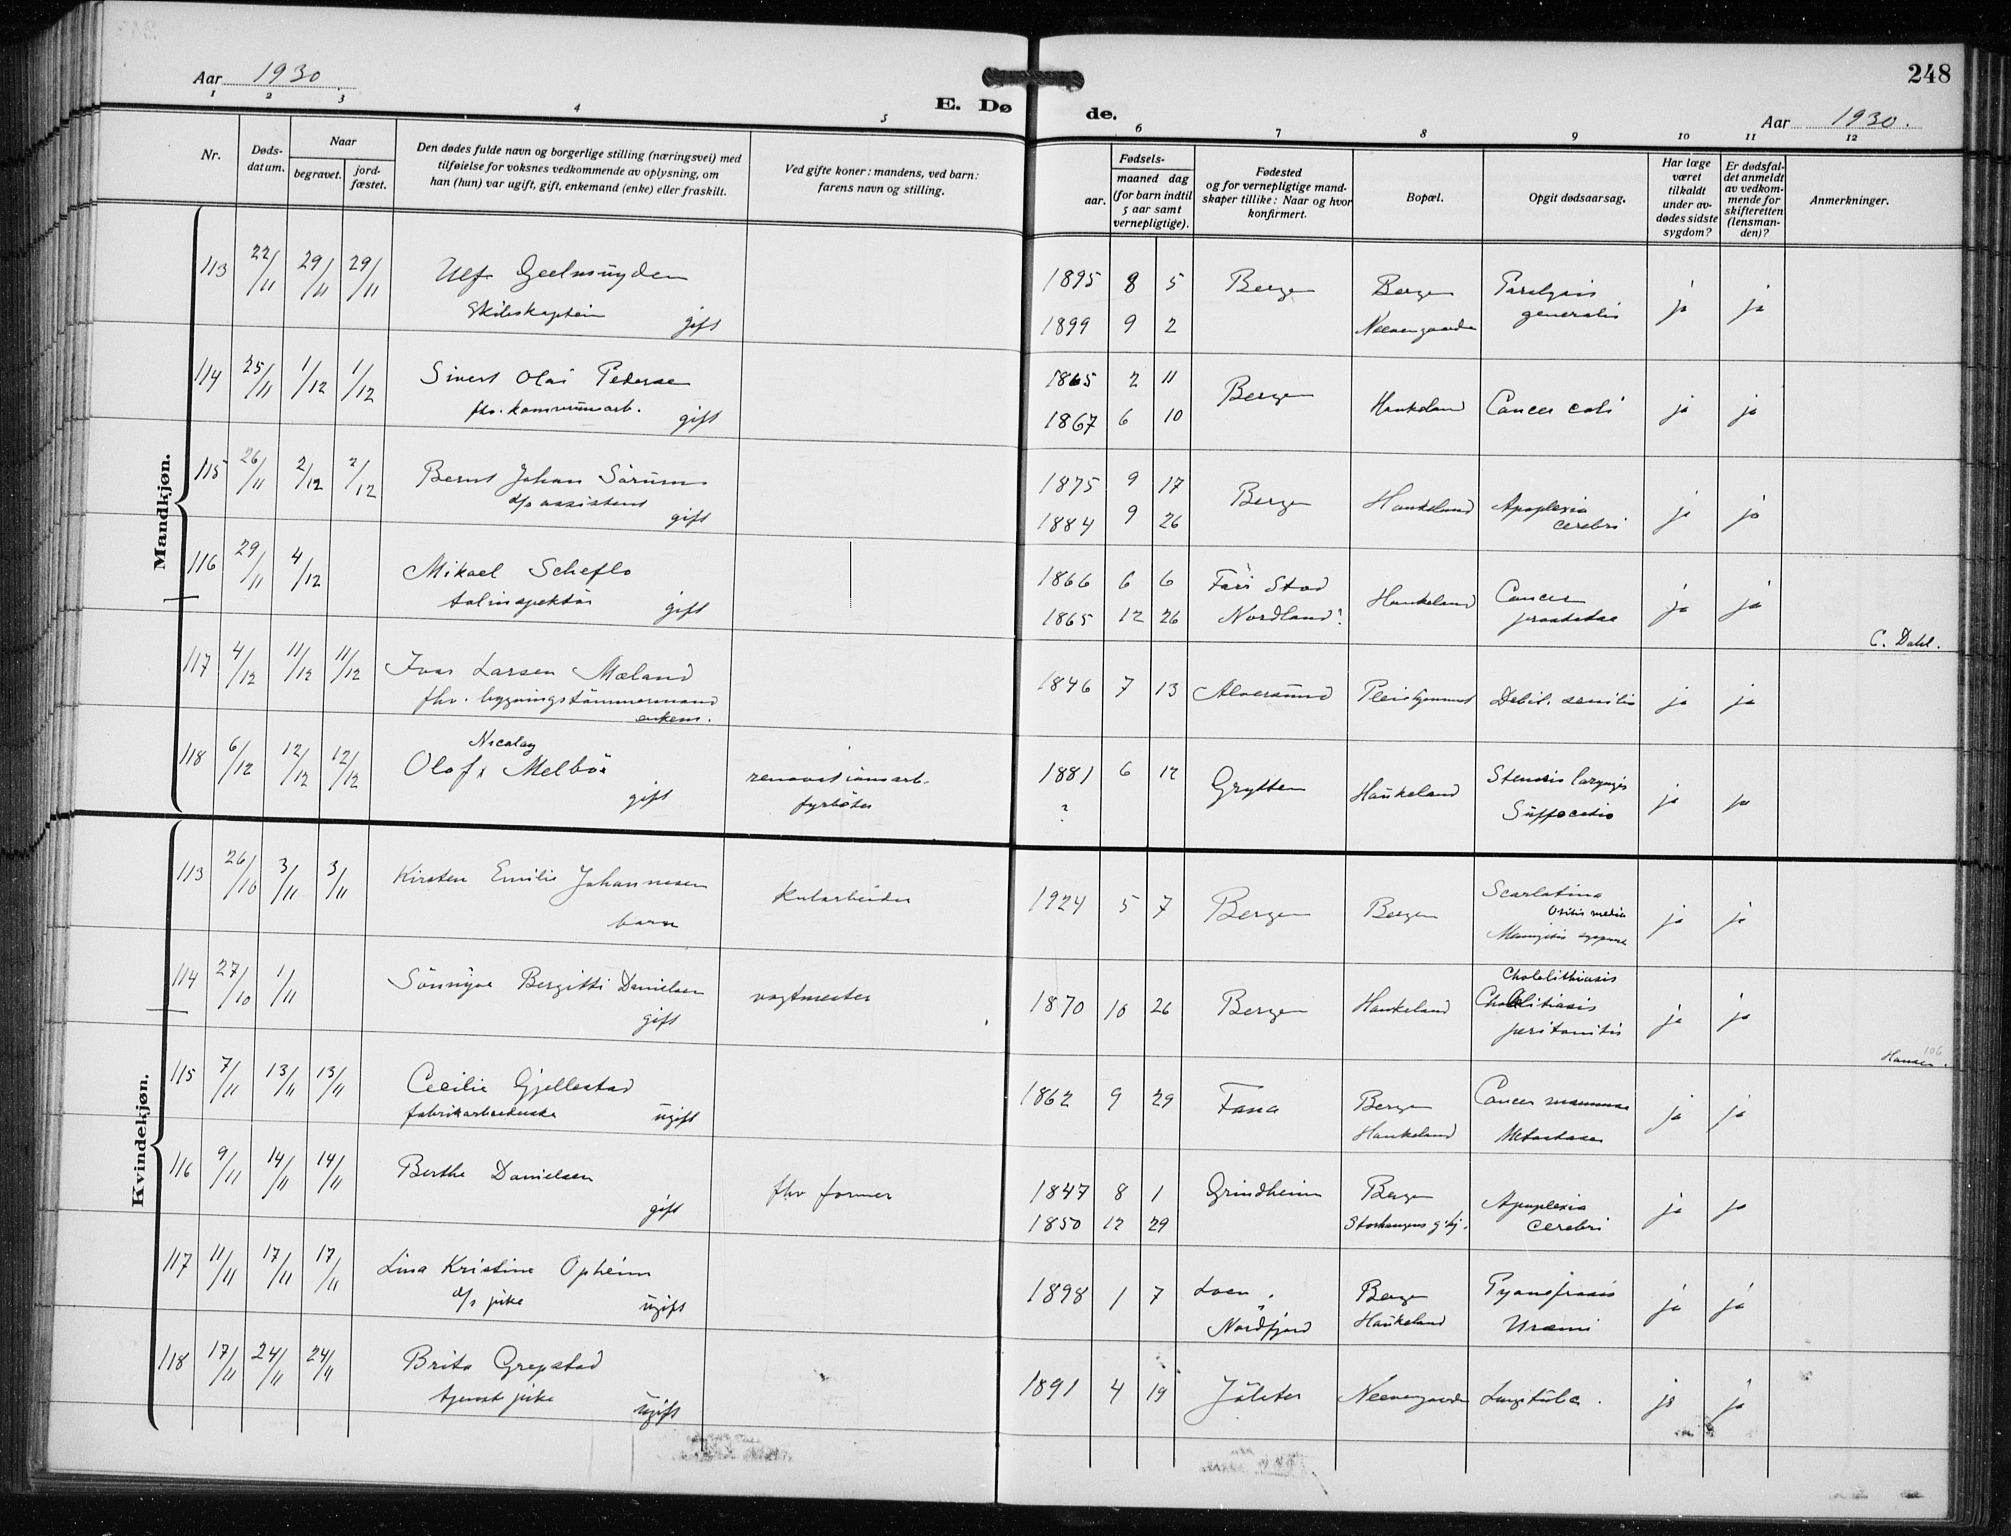 248
Aar 1930
Aar 1930.
E. Døde.
1 2 3 4 5 6 7 8 9 10 11 12
Nr.
Døds-datum.
Naar
begravet.
jord-fæstet.
Den dødes fulde navn og borgerlige stilling (næringsvei) med
tilføielse for voksnes vedkommende av oplysning, om
han (hun) var ugift, gift, enkemand (enke) eller fraskilt.
Ved gifte koner: mandens, ved barn:
farens navn og stilling.
Fødsels-
aar.
maaned dag
(for barn indtil
5 aar samt
vernepligtige).
Fødested
og for vernepligtige mand-
skaper tillike: Naar og hvor
konfirmert.
Bopæl.
Opgit dødsaarsag.
Har læge
været
tilkaldt
under av-
dødes sidste
sygdom?
Er dødsfal-
det anmeldt
av vedkom-
mende for
skifteretten
(lensman-
den)?
Anmerkninger.
Mandkjøn.
113 22/11 29/11 29/11 Ulf Geelmuyden 1895 8 5 Bergen Bergen Paralysis ja ja
Skibskaptein gift 1899 9 2 Neevengaarden generalis
114 25/11 1/12 1/12 Sivert Olai Pedersen 1865 2 11 Bergen Haukeland Cancer coli ja ja
fhv. kommunearb. gift 1867 6 10
115 26/11 2/12 2/12 Bernt Johan Sörum 1875 9 17 Bergen Haukeland Apoplexia ja ja
d/s assistent gift 1884 9 26 cerebri
116 29/11 4/12 Mikael Scheflo 1866 6 6 Stod Haukeland Cancer ja ja
tolinspektör gift 1865 12 26 Nordland? prostatae
C. Dahl.
117 4/12 11/12 11/12 Ivar Larsen Mæland 1846 7 13 Alversund Pleiehjemmet Debil. senilis ja ja
fhv. bygningstömmermand
enkem.
118 6/12 12/12 12/12 Nicolay
Olaf Melbö renovationsarb. 1881 6 12 Grytten Haukeland Stenosis laryngis ja ja
gift fyrböter ? Suffocatio
Kvindekjøn.
113 26/10 3/11 3/11 Kirsten Emilie Johannesen kularbeider 1924 5 7 Bergen Bergen Scarlatina ja ja
barn Otitis media
114 27/10 1/11 Sönnöve Bergitte Danielsen vagtmester 1870 10 26 Bergen Haukeland Chololithiasis ja ja
gift
peritonitis
106
Hansen.
115 7/11 13/11 13/11 Cecilie Gjellestad 1862 9 29 Fana Bergen Cancer mammae ja ja
fabrikarbeiderske ugift Haukeland Metastaser
116 9/11 14/11 14/11 Berthe Danielsen fhv former 1847 8 1 Grindheim Bergen Apoplexia ja ja
gift 1850 12 29 cerebri
117 11/11 17/11 17/11 Lina Kristine Opheim 1898 1 7 Loen, Bergen Pyonefrosis ja ja
d/s pike ugift Nordfjord Haukeland Uræmi
118 17/11 24/11 24/11 Brita Grepstad 1891 4 19 Jölster Neevengaarden Lungetub. ja ja
tjenestpike ugift